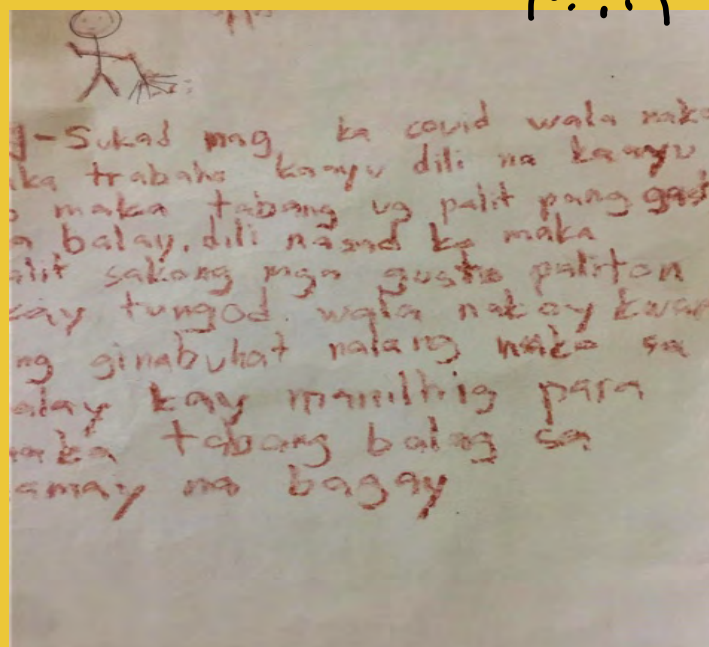 g-Sukad mag ka covid wala nako
ka trabaho kaayu dili na kaayu
maka tabang ug palit pang gas
a balay. dili nasad ko maka
alit sakong mga gusto paliton
kay tungod. wala nakoy kwar
ng ginabuhat nalang nako sa
alay kay manilhig para
maka tabang balag sa
amay na bagay